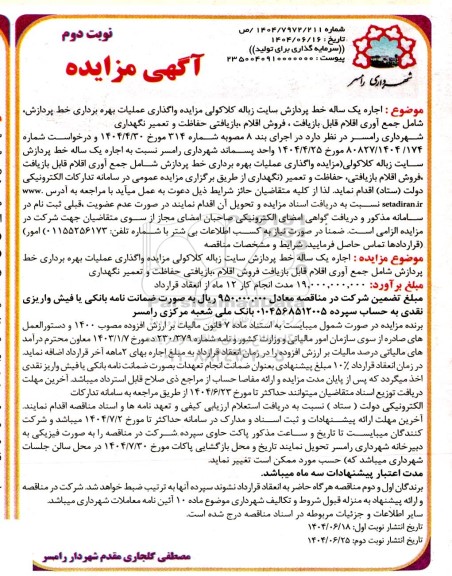 شماره ۱۴۰۴/۷۹۷۲/۲۱۱ /ص
تاریخ : ۱۴۰۴/۰۶/۱۶
((سرمایه گذاری برای تولید))
پیوست : ۲۳۵۰۰۴۰۹۱۰۰۰۰۰۰۰
نوبت دوم
شهرداری رامسر
آگهی مزایده
موضوع : اجاره یک ساله خط پردازش سایت زباله کلاکولی مزایده واگذاری عملیات بهره برداری خط پردازش،
شامل جمع آوری اقلام قابل بازیافت ، فروش اقلام ،بازیافتی حفاظت و تعمیر نگهداری
شهرداری رامسر در نظر دارد در اجرای بند ۸ مصوبه شماره ۳۱۴ مورخ ۱۴۰۴/۴/۳۰ و درخواست شماره
۸۰۸۲۷/۱۴۰۴/۱۷۴ مورخ ۱۴۰۴/۴/۲۵ واحد پسماند شهرداری رامسر نسبت به اجاره یک ساله خط پردازش
سایت زباله کلاکولی(مزایده واگذاری عملیات بهره برداری خط پردازش شامل جمع آوری اقلام قابل بازیافت
،فروش اقلام بازیافتی، حفاظت و تعمیر (نگهداری از طریق برگزاری مزایده عمومی در سامانه تدارکات الکترونیکی
دولت (ستاد) اقدام نماید. لذا از کلیه متقاضیان حائز شرایط ذیل دعوت به عمل میآید با مراجعه به آدرس www.
setadiran.ir نسبت به دریافت اسناد مزایده و تحویل آن اقدام نمایند در صورت عدم عضویت ،قبلی ثبت نام در
سامانه مذکور و دریافت گواهی امضای الکترونیکی صاحبان امضای مجاز از سوی متقاضیان جهت شرکت در
مزایده الزامی است. ضمناً در صورت نیاز به کسب اطلاعات بی شتر با شماره تلفن: ۰۱۱۵۵۲۵۶۱۷۳) امور)
(قراردادها تماس حاصل فرمایید.شرایط و مشخصات مناقصه
موضوع مزایده : اجاره یک ساله خط پردازش سایت زباله کلاکولی مزایده واگذاری عملیات بهره برداری خط
پردازش شامل جمع آوری اقلام قابل بازیافت فروش اقلام ،بازیافتی حفاظت و تعمیر نگهداری
مبلغ برآورد: ۱۹,۰۰۰,۰۰۰,۰۰۰ مدت انجام کار ۱۲ ماه از انعقاد قرارداد
مبلغ تضمین شرکت در مناقصه معادل ۹۵۰.۰۰۰.۰۰۰ ریال به صورت ضمانت نامه بانکی یا فیش واریزی
نقدی به حساب سپرده ۰۱۰۴۵۶۸۵۱۲۰۰۵ بانک ملی شعبه مرکزی رامسر
برنده مزایده در صورت شمول میبایست به استناد ماده ۷ قانون مالیات بر ارزش افزوده مصوب ۱۴۰۰ و دستورالعمل
های صادره از سوی سازمان امور مالیاتی و وزارت کشور و نامه شماره ۲۳۰/۳۷۹/د مورخ ۱۴۰۲/۱/۷ معاون محترم درآمد
های مالیاتی درصد مالیات بر ارزش افزوده را در زمان انعقاد قرارداد به مبلغ اجاره بهای ۲ماهه آخر قرارداد اضافه نماید.
در زمان انعقاد قرارداد ۱۰٪ مبلغ پیشنهادی بعنوان ضمانت انجام تعهدات بصورت ضمانت نامه بانکی یا فیش واریز نقدی
اخذ میگردد که پس از پایان مدت مزایده و ارائه مفاصا حساب از مراجع ذی صلاح قابل استرداد میباشد. آخرین مهلت
دریافت توزیع اسناد متقاضیان میتوانند حداکثر تا مورخ ۱۴۰۴/۶/۲۳ از طریق مراجعه به سامانه تدارکات
الکترونیکی دولت ( ستاد ) نسبت به دریافت استعلام ارزیابی کیفی و تعهد نامه ها و اسناد مناقصه اقدام نمایند.
آخرین مهلت ارائه پیشنهادات و ثبت اسناد و مدارک در سامانه حداکثر تا مورخ ۱۴۰۴/۷/۲ میباشد و شرکت
کنندگان میبایست تا تاریخ و ساعت مذکور پاکت حاوی سپرده شرکت در مناقصه را به صورت فیزیکی به
دبیرخانه شهرداری رامسر تحویل نمایند تاریخ و محل بازگشایی پاکات مورخ ۱۴۰۴/۷/۳۰ در محل سالن جلسات
شهرداری میباشد که) حسب مورد ممکن است تغییر نماید.
مدت اعتبار پیشنهادات سه ماه میباشد.
برندگان اول و دوم مناقصه هر گاه حاضر به انعقاد قرارداد نشوند سپرده آنها به ترتیب ضبط خواهد شد. شرکت در مناقصه
و ارائه پیشنهاد به منزله قبول شروط و تکالیف شهرداری موضوع ماده ۱۰ آئین نامه معاملات شهرداری میباشد.
سایر اطلاعات و جزئیات مربوطه در اسناد مناقصه درج شده است.
تاریخ انتشار نوبت اول: ۱۴۰۴/۰۶/۱۸
تاریخ انتشار نوبت دوم: ۱۴۰۴/۰۶/۲۵
مصطفی گلجاری مقدم شهردار رامسر